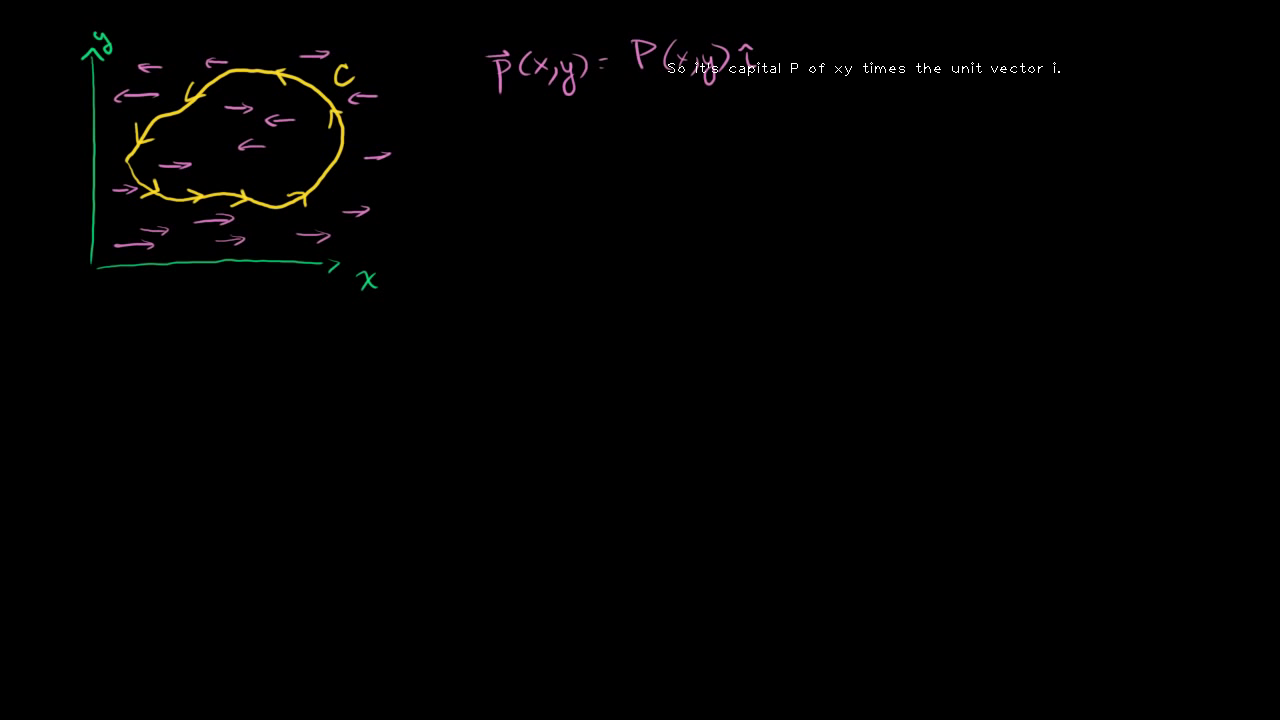 y
C
x
p⃗(x,y) = P(x,y) î
So it's capital P of xy times the unit vector i.